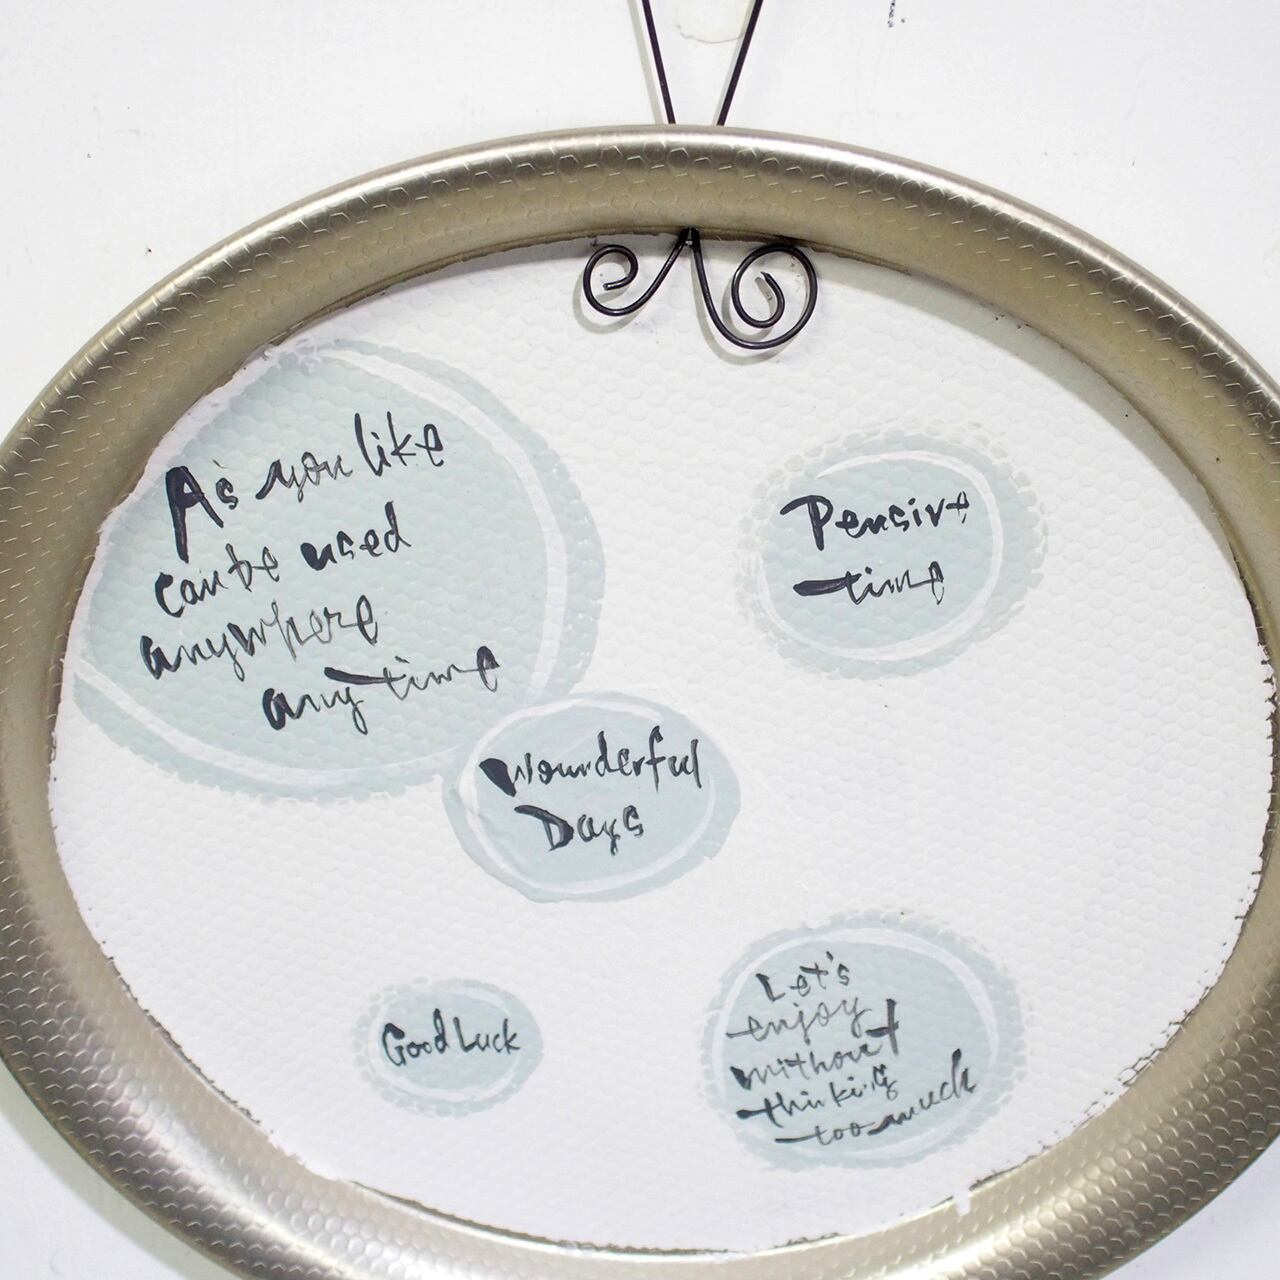 As you like
can be used
anywhere
any time
Pensive
time
Wounderful
Days
Good Luck
Let's
enjoy
without
thinking
too much